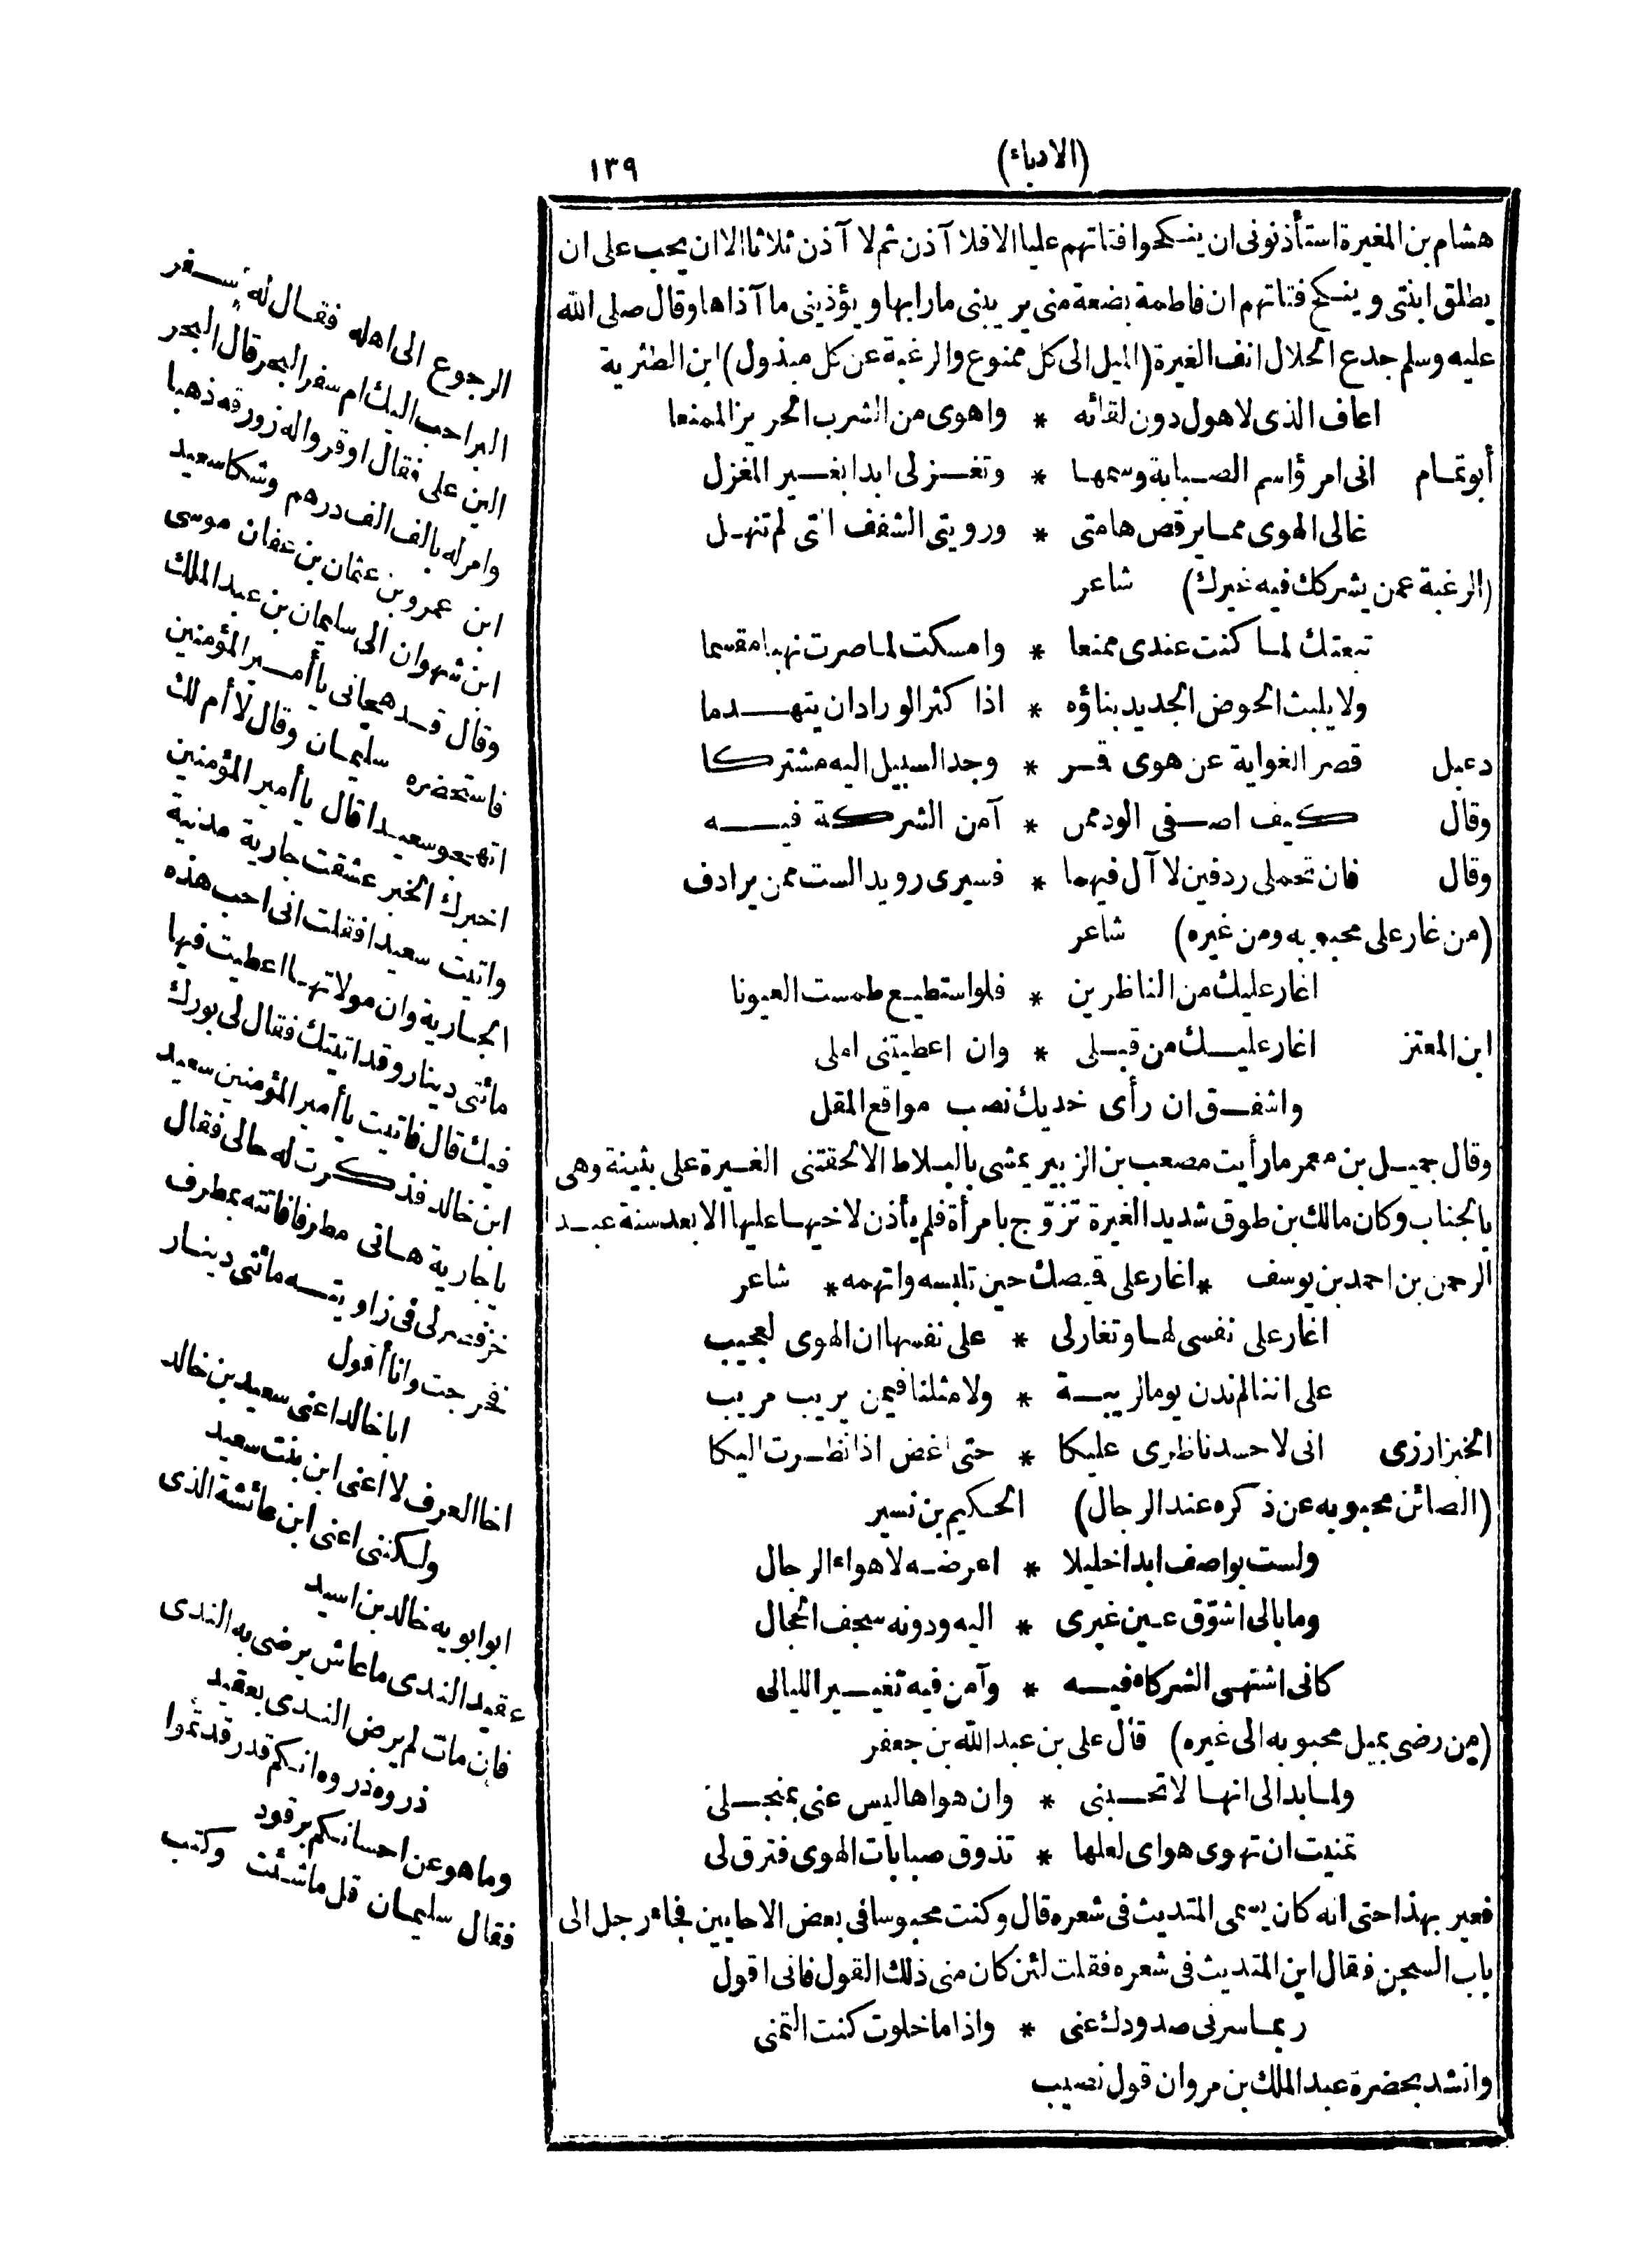 (الادباء)
١٣٩
هشام بن المغيرة استأذنونى ان ينكحوا فتاتهم عليا الا فلا آذن ثم لا آذن ثلاثا الا ان يحب على ان
يطلق ابنتى وينكح فتاتهم ان فاطمة بضعة منى يريبنى ما رابها ويؤذينى ما آذاها وقال صلى الله
عليه وسلم جدع الحلال انف الغيرة (الميل الى كل ممنوع والرغبة عن كل مبذول) ابن الطثرية
اعاف الذى لا هول دون لقائه * واهوى من الشرب الحريز الممنعا
أبو تمام انى امرؤ اسم الصبابة وسمها * وتغزلى ابدا بغير المغزل
غالى الهوى مما يرقص هامتى * ورويتى الشغف التى لم تنهل
(الرغبة عمن يشركك فيه غيرك) شاعر
تبعتك لما كنت عندى ممنعا * وامسكت لما صرت نهبا مقسما
ولا يلبث الحوض الجديد بناؤه * اذا كثر الوراد ان يتهدما
دعبل قصر الغواية عن هوى قمر * وجد السبيل اليه مشتركا
وقال كيف اصفى الود من * آمن الشركة فيه
وقال فان تحملى ردفين لا آل فيهما * فسيرى رويدا لست ممن يرادف
(من غار على محبوبه ومن غيره) شاعر
اغار عليك من الناظرين * فلو استطيع طمست العيونا
ابن المعتز اغار عليك من قبلى * وان اعطيتنى املى
واشفق ان رأى خديك نصب مواقع المقل
وقال جميل بن معمر ما رأيت مصعب بن الزبير يمشى بالبلاط الا لحقتنى الغيرة على بثينة وهى
بالجناب وكان مالك بن طوق شديد الغيرة تزوّج بامرأة فلم يأذن لاخيها عليها الا بعد سنة عبد
الرحمن بن احمد بن يوسف * اغار على قميصك حين تلبسه واتهمه * شاعر
اغار على نفسى لها وتغار لى * على نفسها ان الهوى لعجيب
على اننا لم ندن يوما لريبة * ولا مثلنا فيمن يريب مريب
الخبزارزى انى لاحسد ناظرى عليكا * حتى اغض اذا نظرت اليكا
(الصائن محبوبه عن ذكره عند الرجال) الحكيم بن نسير
ولست بواصف ابدا خليلا * اعرضه لاهواء الرجال
وما بالى اشوّق عين غيرى * اليه ودونه سجف الحجال
كانى اشتهى الشركاء فيه * وآمن فيه تغيير الليالى
(من رضى بميل محبوبه الى غيره) قال على بن عبد الله بن جعفر
ولما بدا لى انها لا تحبنى * وان هواها ليس عنى بمنجلى
تمنيت ان تهوى هواى لعلها * تذوق صبابات الهوى فترق لى
فعير بهذا حتى انه كان يسمى المتديث فى شعره قال وكنت محبوسا فى بعض الاحايين فجاء رجل الى
باب السجن فقال اين المتديث فى شعره فقلت لئن كان منى ذلك القول فانى اقول
ربما سرنى صدودك عنى * واذا ما خلوت كنت التمنى
وانشد بحضرة عبد الملك بن مروان قول نصيب
الرجوع الى اهله فقال له اسفر
البر احب اليك ام سفر البحر قال البحر
الين على فقال اوقروا له زورقه ذهبا
وامر له بالف الف درهم وشكا سعيد
ابن عمرو بن عثمان بن عفان موسى
ابن شهوان الى سليمان بن عبد الملك
وقال قد هجانى يا أمير المؤمنين
فاستحضره سليمان وقال لا أم لك
اتهجو سعيدا قال يا أمير المؤمنين
اخبرك الخبر عشقت جارية مدنية
واتيت سعيدا فقلت انى احب هذه
الجارية وان مولاتها اعطيت فيها
مائتى دينار وقد اتيتك فقال لى بورك
فيك قال فاتيت يا أمير المؤمنين سعيد
ابن خالد فذكرت له حالى فقال
يا جارية هاتى مطرفا فاتته بمطرف
خز فصر لى فى زاويته مائتى دينار
فخرجت وانا أقول
ابا خالد اعنى سعيد بن خالد
اخا العرف لا اعنى ابن بنت سعيد
ولكننى اعنى ابن عائشة الذى
ابو ابويه خالد بن اسيد
عقيد الندى ما عاش يرضى به الندى
فان مات لم يرض الندى بعقيد
ذروه ذروه انكم قد رقدتموا
وما هو عن احسانكم برقود
فقال سليمان قل ما شئت وكتب